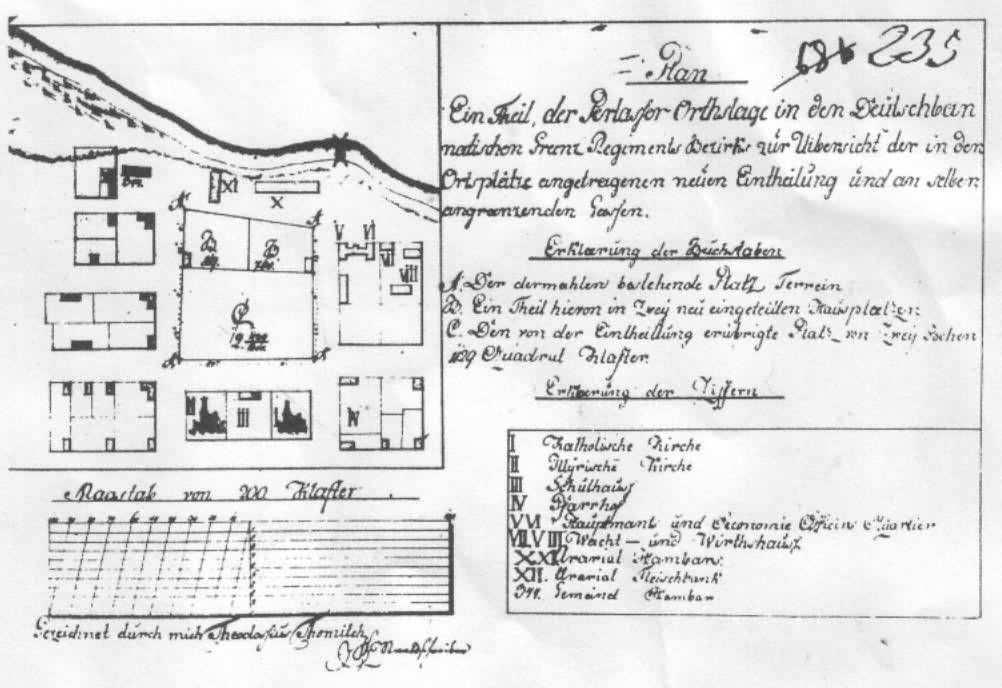 235
Plan
Ein Theil, der Perlasfor Orthslage in den Deutschban
natischen Grenz Regiments Bezirks zur Uibersicht der in den
Ortsplätze angetragenen neuen Eintheilung und an selben
angränzenden Gassen.
Erklärung der Buchstaben
A. Der dermahlen bestehende Platz Terrein
B. Ein Theil hievon in Zwey neu eingeteilten Hausplätzen
C. Den von der Eintheillung erübrigte Platz von Zwey Jochen
129 Quadrat Klafter
Erklärung der Ziffern
I Katholische Kirche
II Illyrische Kirche
III Schulhaus
IV Pfarrhof
V VI Hauptmans und Oeconomie Officirs Quartier
VII VIII Wacht- und Wirthshaus
X XI Ararial Hambars
XII. Ararial Fleischbank
Gemeind Hambar
XI
X
A
A
B
B
V
VI
VII
VIII
C
A
A
II
III
I
IV
Maastab von 200 Klafter
Gezeichnet durch mich Theodosius Thomitsch